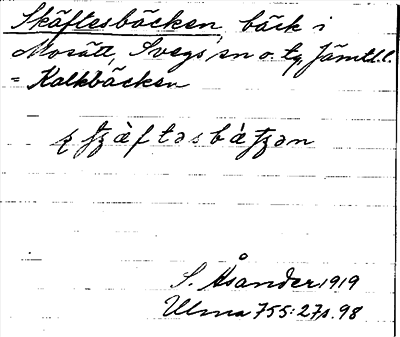 Skäftesbäcken, bäck i
Mosätt, Svegs sn o tg, Jämtl. l.
= Kalkbäcken
S. Åsander 1919
Ulma 755:27 s. 98